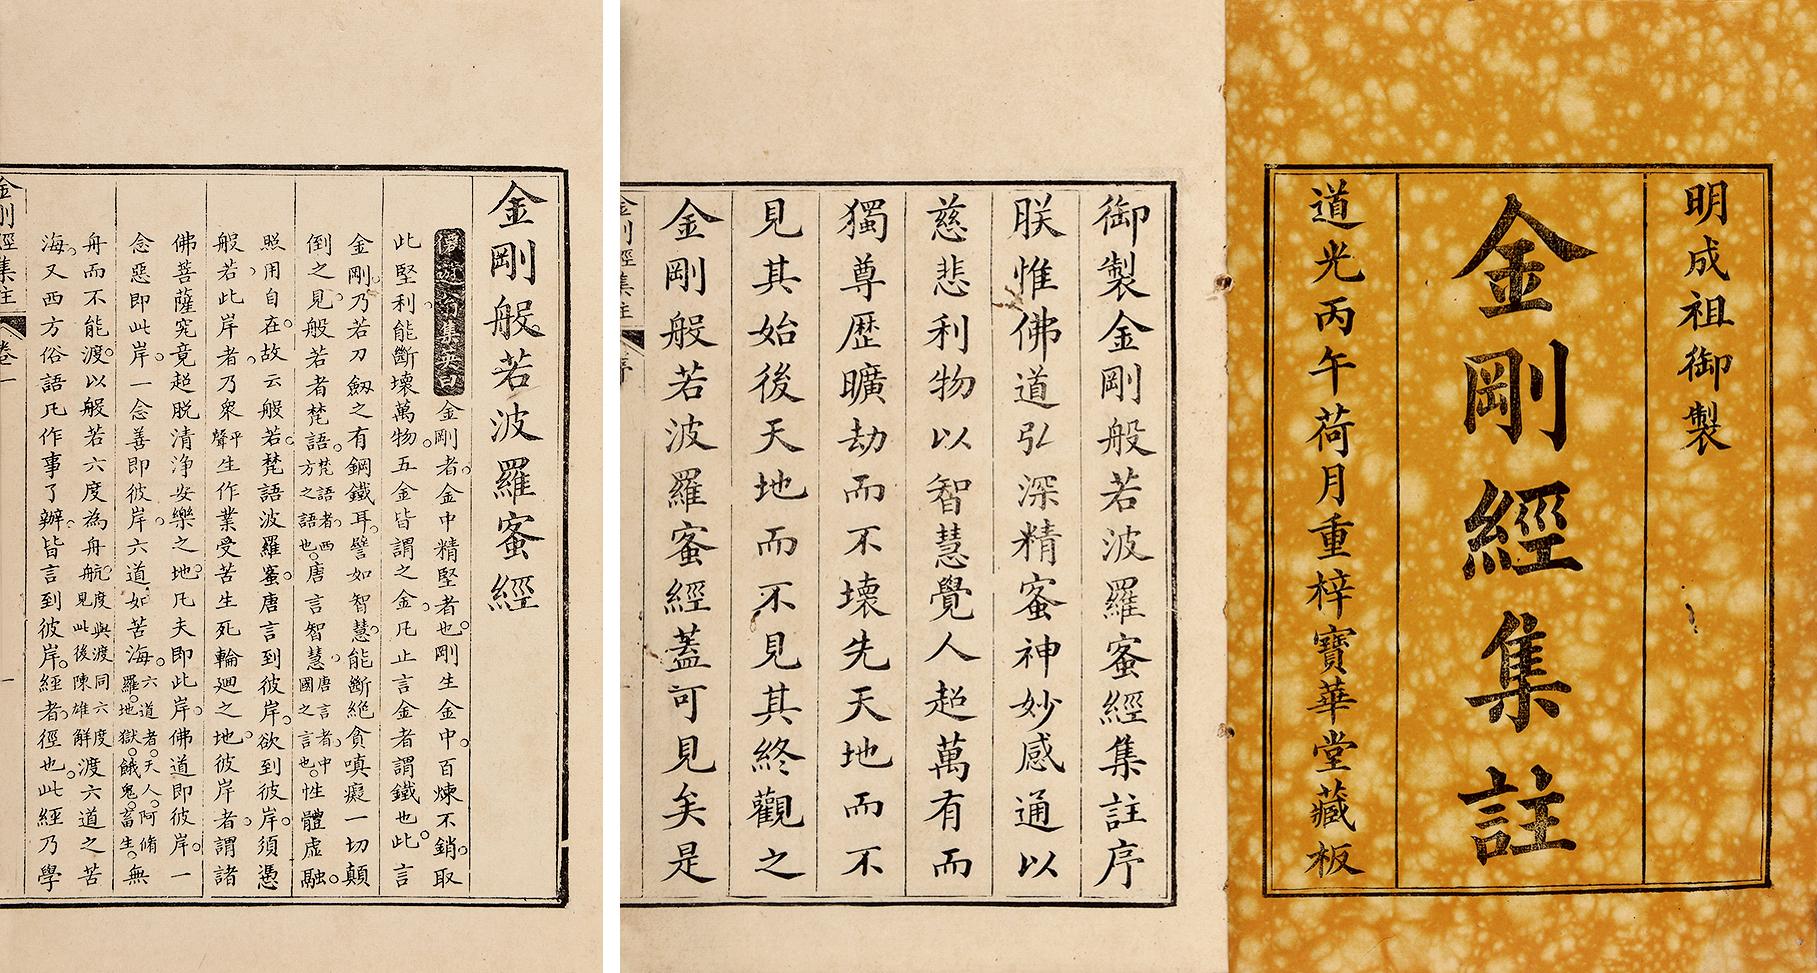 明成祖御製
金剛經集註
道光丙午荷月重梓寶華堂藏板
御製金剛般若波羅蜜經集註序
朕惟佛道弘深精蜜神妙感通以
慈悲利物以智慧覺人超萬有而
獨尊歷曠劫而不壞先天地而不
見其始後天地而不見其終觀之
金剛般若波羅蜜經蓋可見矣是
金剛經集註 序
金剛般若波羅蜜經
集英曰金剛者金中精堅者也剛生金中百煉不銷取
此堅利能斷壞萬物五金皆謂之金凡止言金者謂鐵也此言
金剛乃若刀劒之有鋼鐵耳譬如智慧能斷絕貪嗔癡一切顛
倒之見般若者梵語梵語者西方之語也唐言智慧唐言者中國之言也性體虛融
照用自在故云般若梵語波羅蜜唐言到彼岸欲到彼岸須憑
般若此岸者乃衆平聲生作業受苦生死輪廻之地彼岸者謂諸
佛菩薩究竟超脫清淨安樂之地凡夫即此岸佛道即彼岸一
念惡即此岸一念善即彼岸六道如苦海六道者天人阿脩羅地獄餓鬼畜生無
舟而不能渡以般若六度為舟航度與渡同六度見此後陳雄解渡六道之苦
海又西方俗語凡作事了辦皆言到彼岸經者徑也此經乃學
金剛經集註 卷一 一